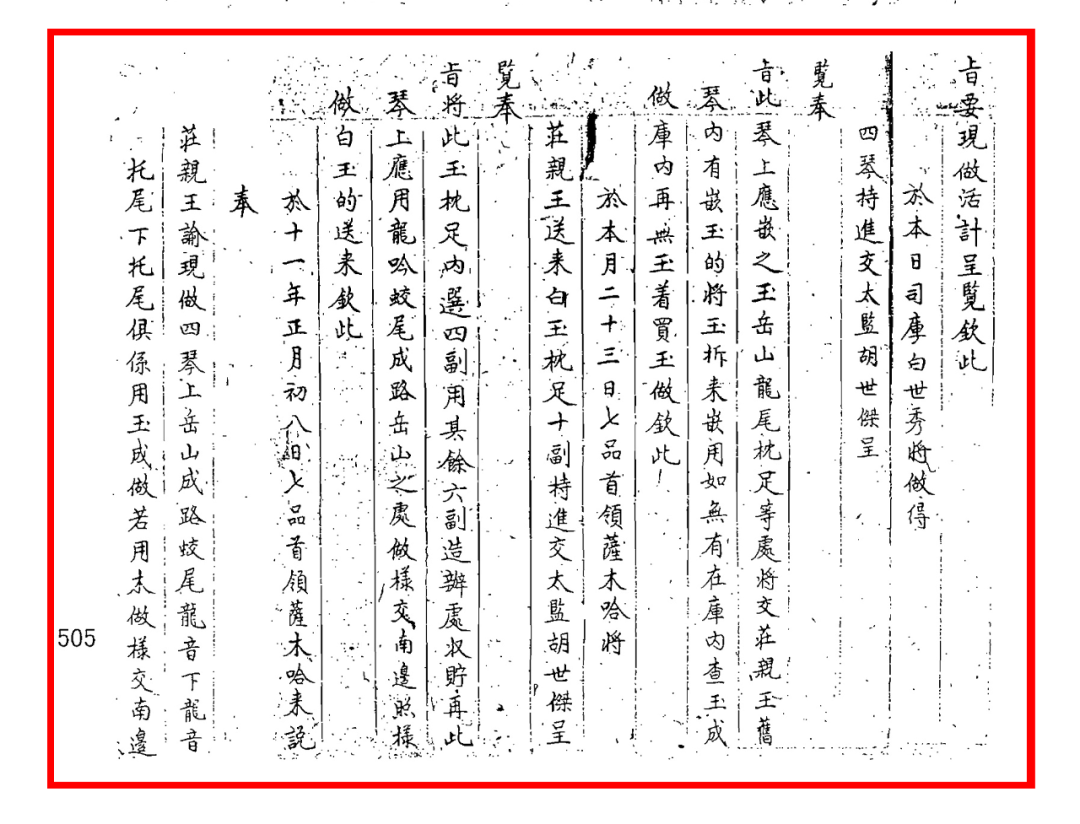 旨要現做活計呈覽欽此
於本日司庫白世秀將做得
四琴持進交太監胡世傑呈
覽奉
旨此琴上應嵌之玉岳山龍尾枕足等處將交莊親王舊
琴內有嵌玉的將玉拆来嵌用如無有在庫內查玉成
做庫內再無玉着買玉做欽此
於本月二十三日七品首領薩木哈將
莊親王送来白玉枕足十副持進交太監胡世傑呈
覽奉
旨將此玉枕足內選四副用其餘六副造辦處收貯再此
琴上應用龍吟蛟尾成路岳山之處做樣交南邊照樣
做白玉的送来欽此
於十一年正月初八日七品首領薩木哈来說
奉
莊親王諭現做四琴上岳山成路蛟尾龍音下龍音
托尾下托尾俱係用玉成做若用木做樣交南邊
505